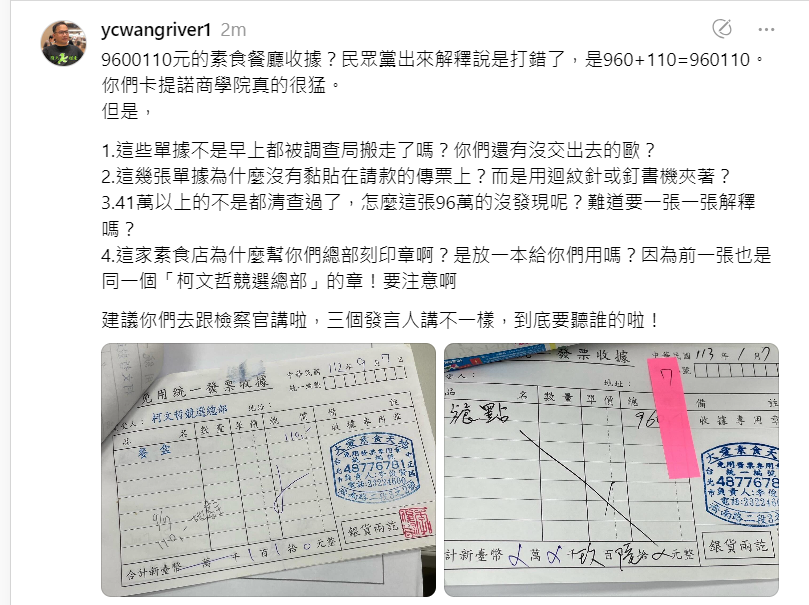 ycwangriver1 2m
9600110元的素食餐廳收據？民眾黨出來解釋說是打錯了，是960+110=960110。
你們卡提諾商學院真的很猛。
但是，
1.這些單據不是早上都被調查局搬走了嗎？你們還有沒交出去的歐？
2.這幾張單據為什麼沒有黏貼在請款的傳票上？而是用迴紋針或釘書機夾著？
3.41萬以上的不是都清查過了，怎麼這張96萬的沒發現呢？難道要一張一張解釋
嗎？
4.這家素食店為什麼幫你們總部刻印章啊？是放一本給你們用嗎？因為前一張也是
同一個「柯文哲競選總部」的章！要注意啊
建議你們去跟檢察官講啦，三個發言人講不一樣，到底要聽誰的啦！
免用統一發票收據
中華民國 112年
柯文哲競選總部
名 數量 單價 總
備 註
收據專用章
大愛素食天地
免用發票專用章
統一編號
48776781
電話:23224666
銀貨兩訖
合計新臺幣 萬 千 1 百 1 拾 0 元整
發票收據
中華民國 113年 1月 7
地址:
名 數量 單價 總
備 註
餐點
960
收據專用章
大愛素食天
免用發票專用
統一編號
4877678
電話:2322466
銀貨兩訖
計新臺幣 萬 千 玖 百 陸 拾 元整